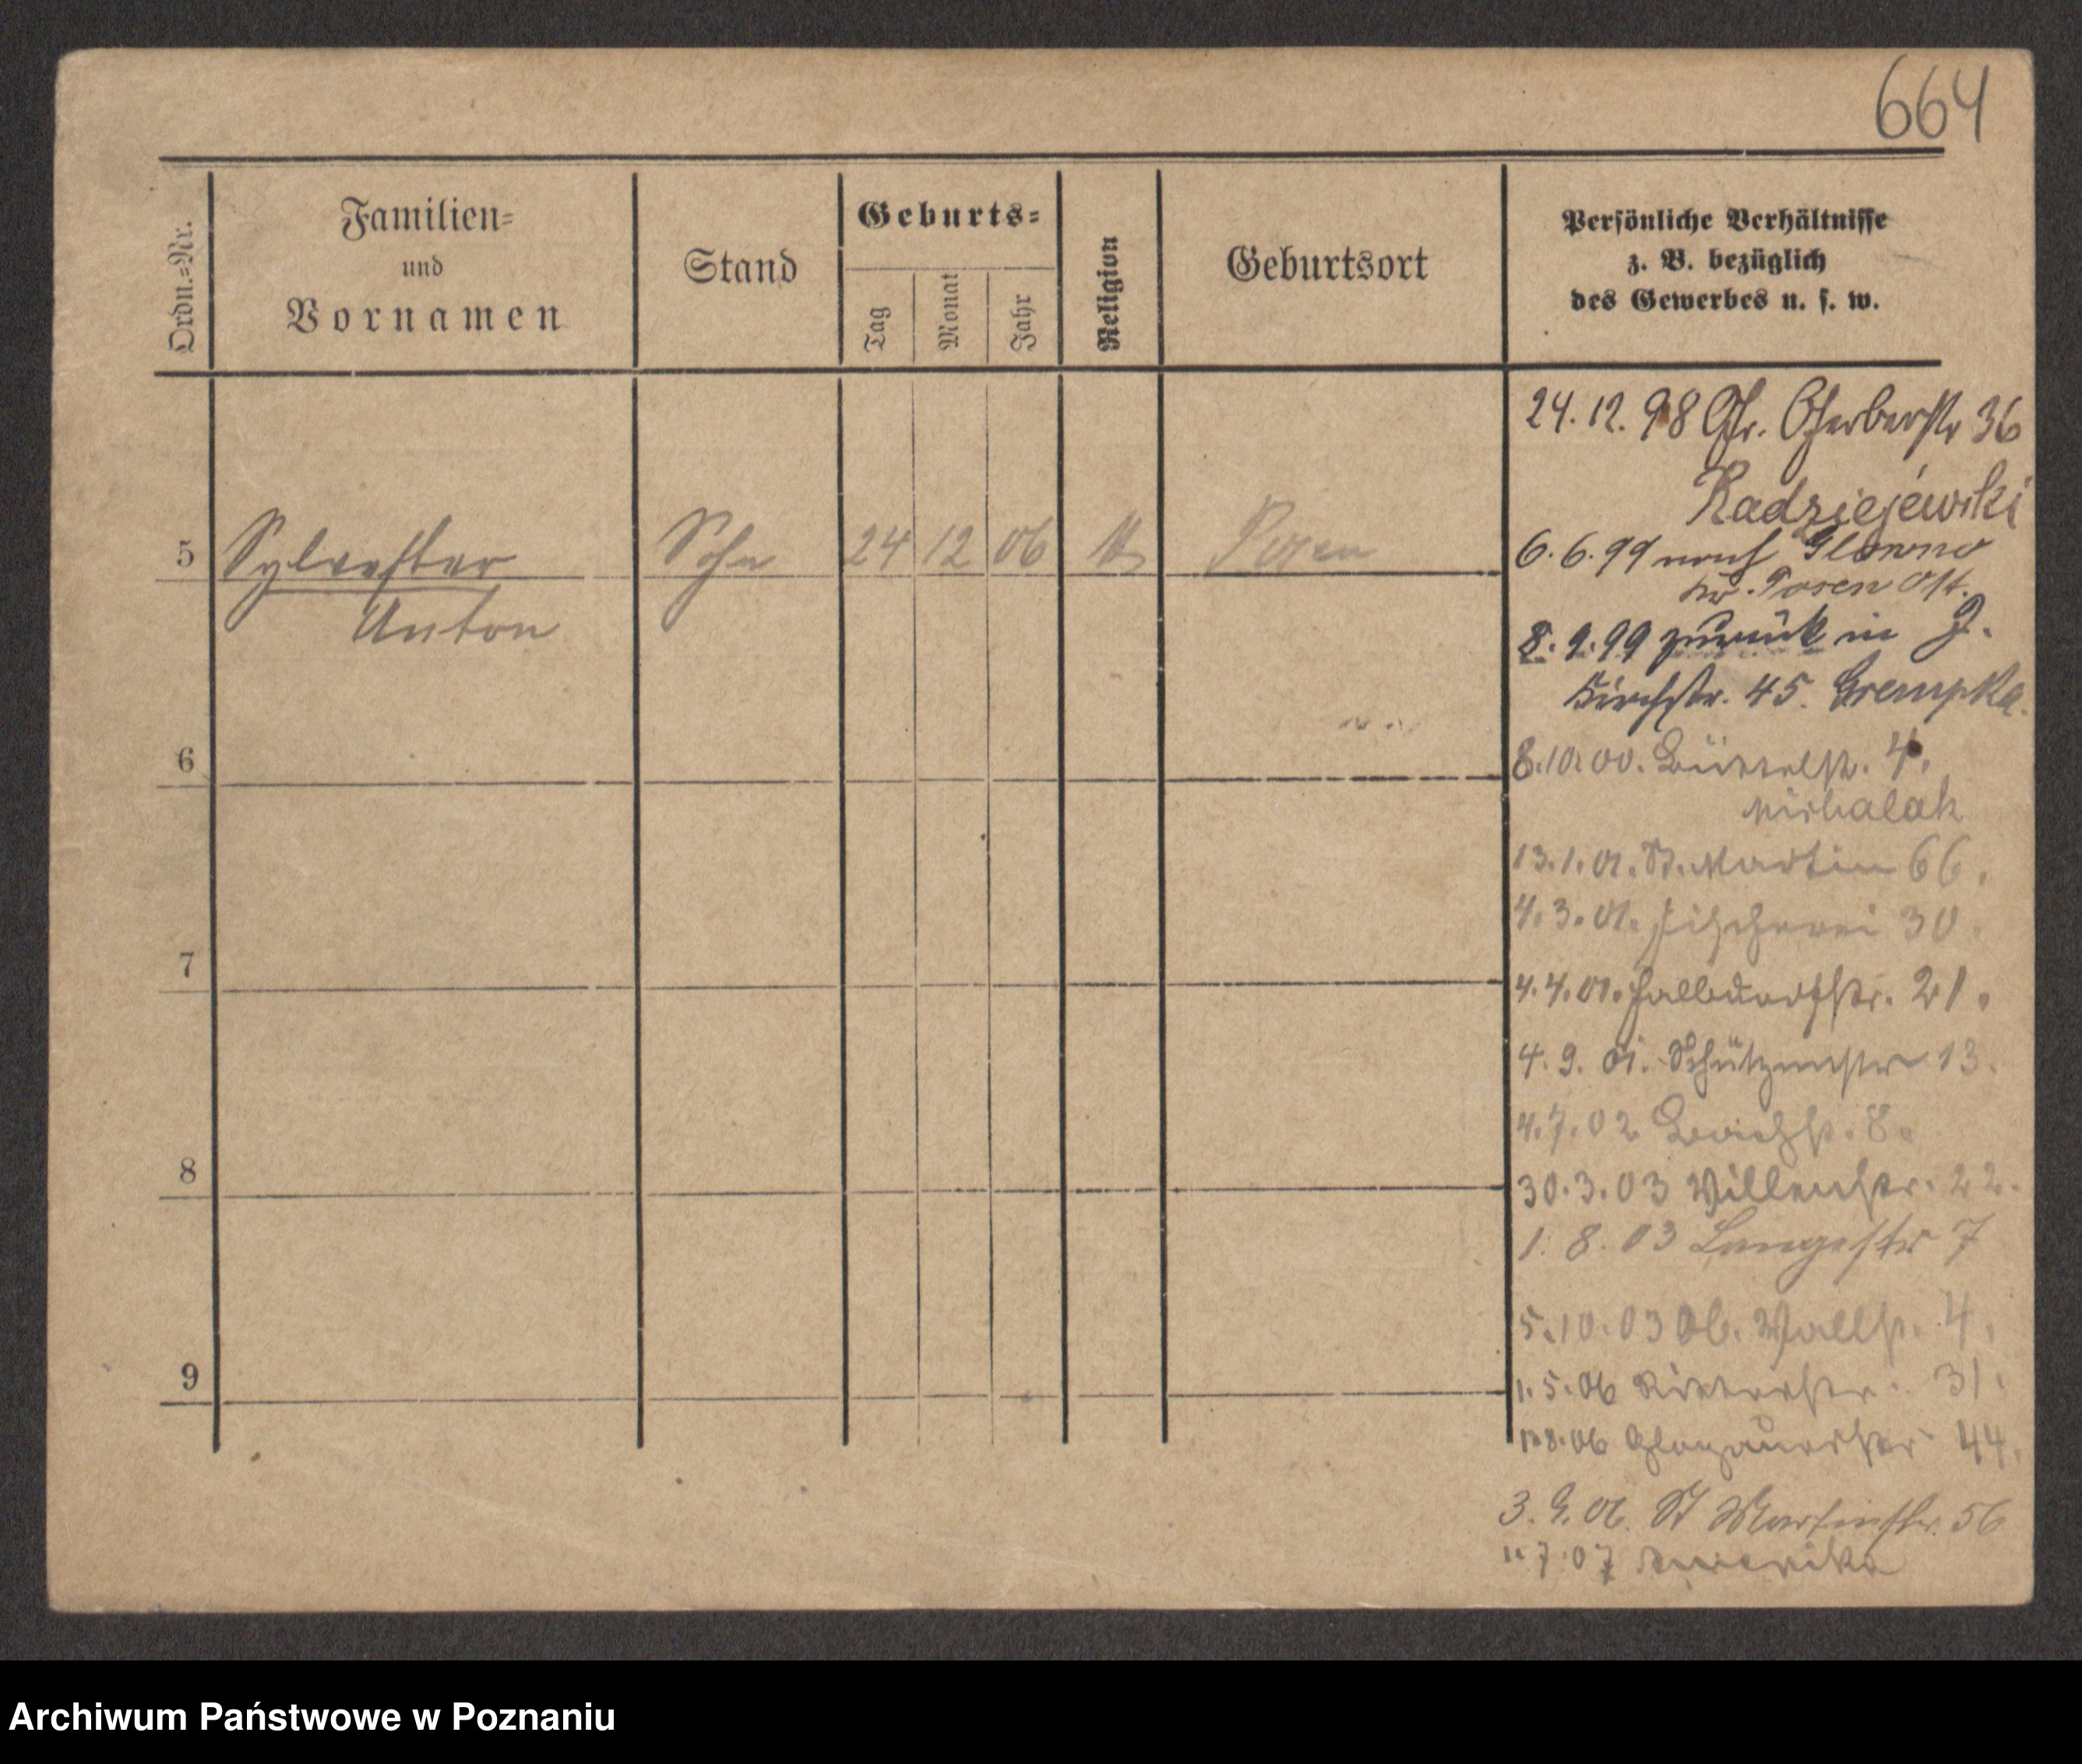 664
Ordn.-Nr.
Familien-
und
Vornamen
Stand
Geburts-
Tag
Monat
Jahr
Religion
Geburtsort
Persönliche Verhältnisse
z. B. bezüglich
des Gewerbes u. s. w.
24.12.98 Gr. Gerberstr 36
Radziejewski
5 Sylvester Sohn 24 12 06 Posen
Anton
6.6.99 nach Glowno
Kr. Posen Ost.
8.9.99 zurück in J.
Kirchstr. 45. Grempka.
6
8.10.00. Büttelstr. 4.
Michalak
13.1.01. St. Martin 66.
4.3.01. Fischerei 30.
7
4.4.01. Halbdorfstr. 21.
4.9.01. Schützenstr 13.
4.7.02 Bachstr. 8.
8
30.3.03 Villenstr. 22.
1.8.03 Langestr 7
5.10.03 Ob. Wallstr. 4.
9
1.5.06 Ritterstr. 31.
8.06 Glogauerstr 44.
3.9.06. St Martinstr. 56
7.07 Amerika
Archiwum Państwowe w Poznaniu